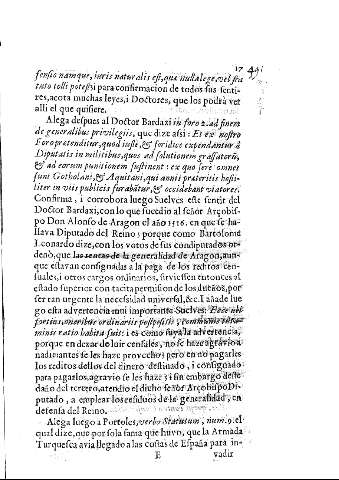 17
fensio namque, iuris naturalis est, quæ nulla lege, vel sta
tuto tolli potest; i para confirmacion de todos sus senti-
res, acota muchas leyes, i Doctores, que los podrà vet
alli el que quisiere.
Alega despues al Doctor Bardaxi in foro 2. ad finem
de generalibus privilegiis, que dize assi: Et ex nostro
Foro pretenditur, quod iuste, & foridice expendantur à
Diputatis in militibus, quos ad solutionem grassatorũ,
& ad earum punitionem sustinent: ex quo ferè omnes
sunt Gotholani, & Aquitani, qui annis præteritis hosti-
liter in viis publicis furabãtur, & occidebant viatores.
Confirma, i corrobora luego Suelves este sentir del
Doctor Bardaxi, con lo que sucedio al señor Arçobis-
po Don Alonso de Aragon el año 1516. en que se ha-
llava Diputado del Reino; porque como Bartolome
Leonardo dize, con los votos de sus condiputados or-
denò, que las de la generalidad de Aragon, aun-
que estavan consignadas a la paga de los reditos cen-
suales, i otros cargos ordinarios, sirviessen entonces al
estado superior con tacita permision de los dueños, por
ser tan urgente la necessidad universal, &c. I añade lue
go esta advertencia mui importante Suelves:
portius, oneribus ordinariis postpositis,
minis ratio habita fuit: i es como suya la advertencia,
porque en dexar de luir censales, no se haze agravio a
nadi antes se les haze provecho; pero en no pagarles
los reditos dellos del dinero destinado, i consignado
para pagarlos, agravio se les haze; i sin embargo deste
daño del tercero, atendio el dicho señor Arçobispo Di-
putado, a emplear los residuos de la generalidad, en
defensa del Reino.
Alega luego a Portoles, verbo Statutum, num. 9. el
qual dize, que por sola fama que huvo, que la Armada
Turquesca avia llegado a las costas de España para in-
E vadir